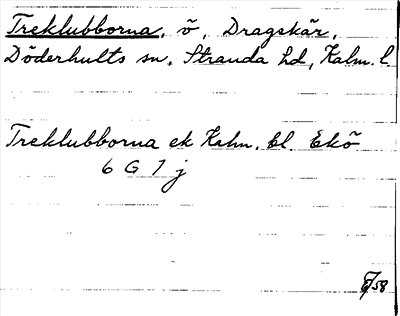 Treklubborna, ö, Dragskär,
Döderhults sn, Stranda hd, Kalm. l.
Treklubborna ek Kalm. bl. Ekö
6 G 7 j
58